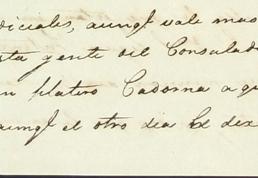 diciales, aunqe vale mas
sta gente del Consulad
n platero Cadorna a qu
aunqe el otro dia le dix